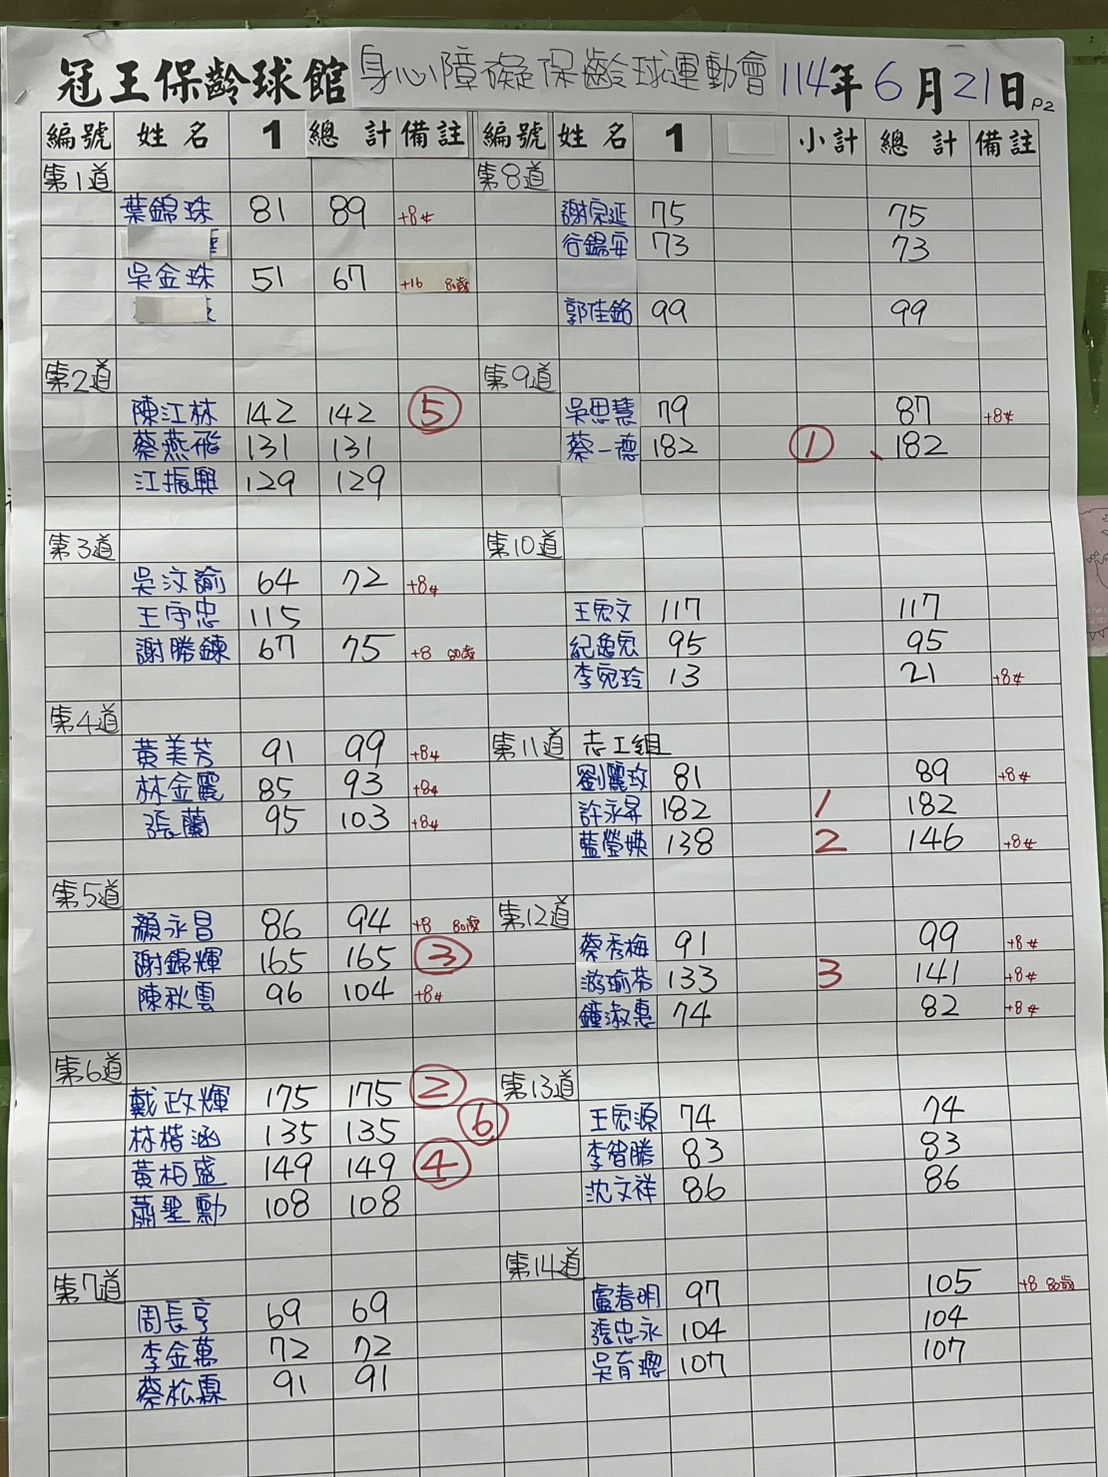 冠王保齡球館 身心障礙保齡球運動會 114年6月21日 P2
編號 姓名 1 總計 備註
第1道
葉錦珠 81 89 +8女
吳金珠 51 67 +16 80歲
第2道
陳江林 142 142 ⑤
蔡燕飛 131 131
江振興 129 129
第3道
吳汶諭 64 72 +8女
王守忠 115
謝勝鍊 67 75 +8 80歲
第4道
黃美芳 91 99 +8女
林金霞 85 93 +8女
張蘭 95 103 +8女
第5道
顏永昌 86 94 +8 80歲
謝錦輝 165 165 ③
陳秋雲 96 104 +8女
第6道
戴政輝 175 175 ②
林楷涵 135 135 ⑥
黃柏盛 149 149 ④
蕭聖勳 108 108
第7道
周長亨 69 69
李金萬 72 72
蔡松霖 91 91
編號 姓名 1 小計 總計 備註
第8道
謝宗延 75 75
行錫安 73 73
郭佳銘 99 99
第9道
吳思慧 79 87 +8女
蔡一德 182 ① 182
第10道
王宏文 117 117
紀逸宏 95 95
李宛玲 13 21 +8女
第11道 志工組
劉麗玫 81 89 +8女
許永昇 182 1 182
藍瑩瑛 138 2 146 +8女
第12道
蔡秀梅 91 99 +8女
游瑜芬 133 3 141 +8女
鍾淑惠 74 82 +8女
第13道
王宏源 74 74
李智勝 83 83
沈文祥 86 86
第14道
盧春明 97 105 +8 80歲
張忠永 104 104
吳育璁 107 107